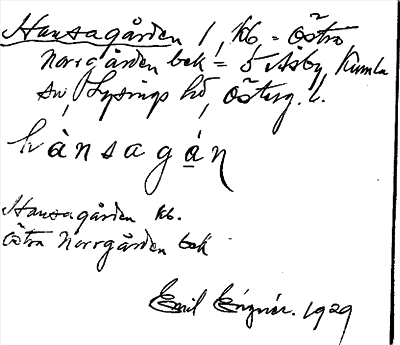 Hansagården 1, kb = Östra
Norrgården bek = 5 Åsby, Kumla
sn, Lysings hd, Österg. l.
hànsagạ́n
Hansagården kb.
Östra Norrgården bek
Emil 1929